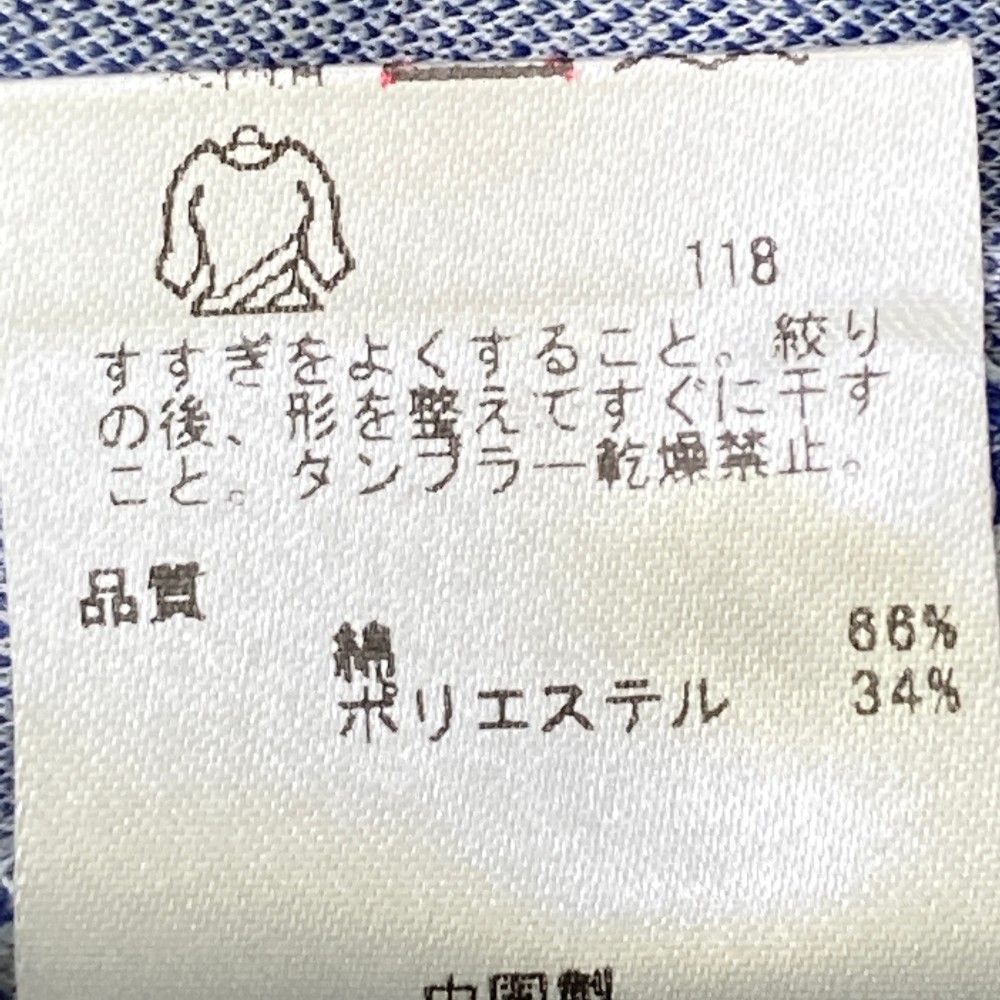 118
すすぎをよくすること。絞り
の後、形を整えてすぐに干す
こと。タンブラー乾燥禁止。
品質
綿 66%
ポリエステル 34%
中国製